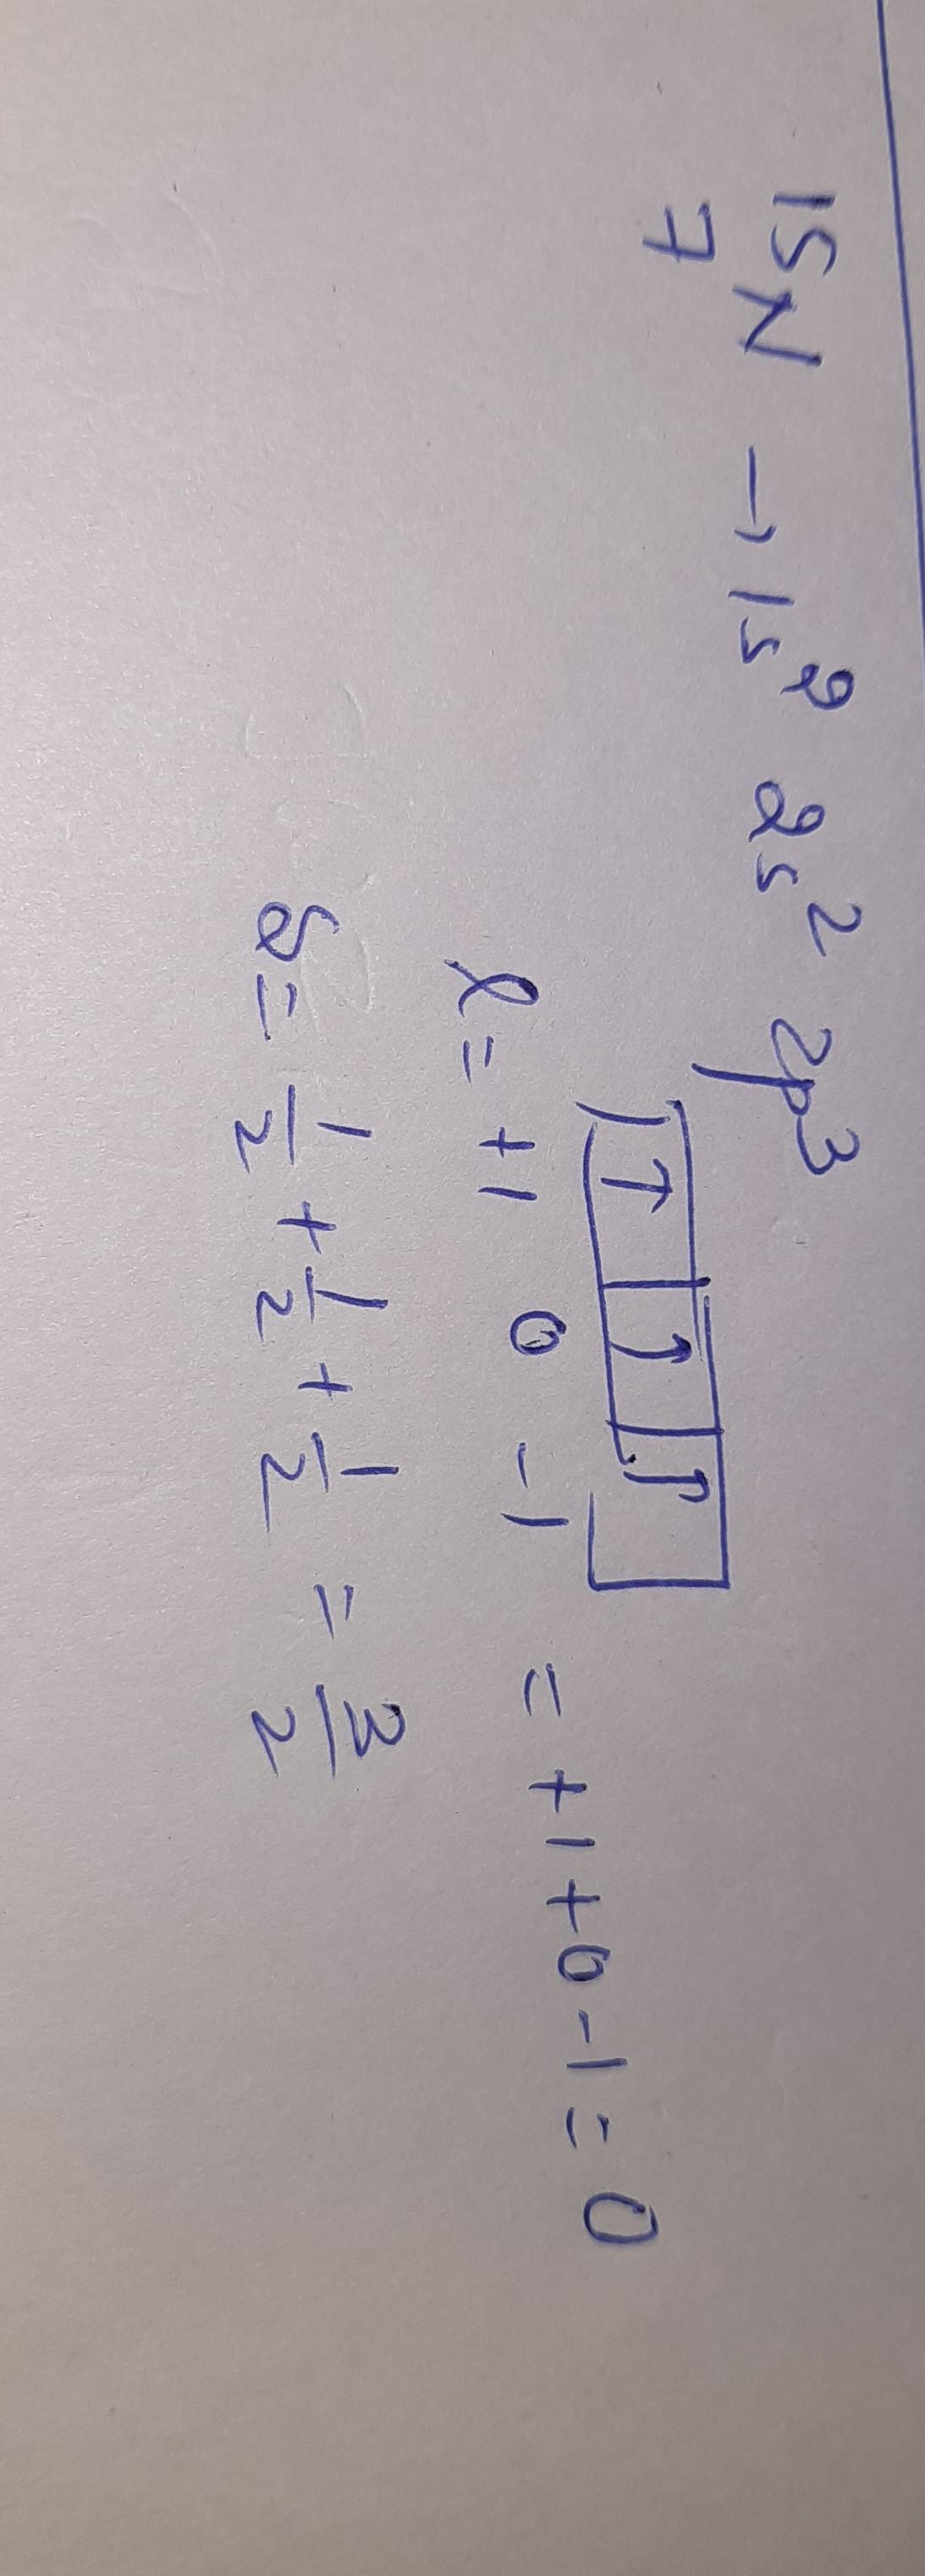 15N → 1s² 2s² 2p³
7
↑ ↑ ↑
l = +1 0 -1 = +1+0-1=0
S = 1/2 + 1/2 + 1/2 = 3/2